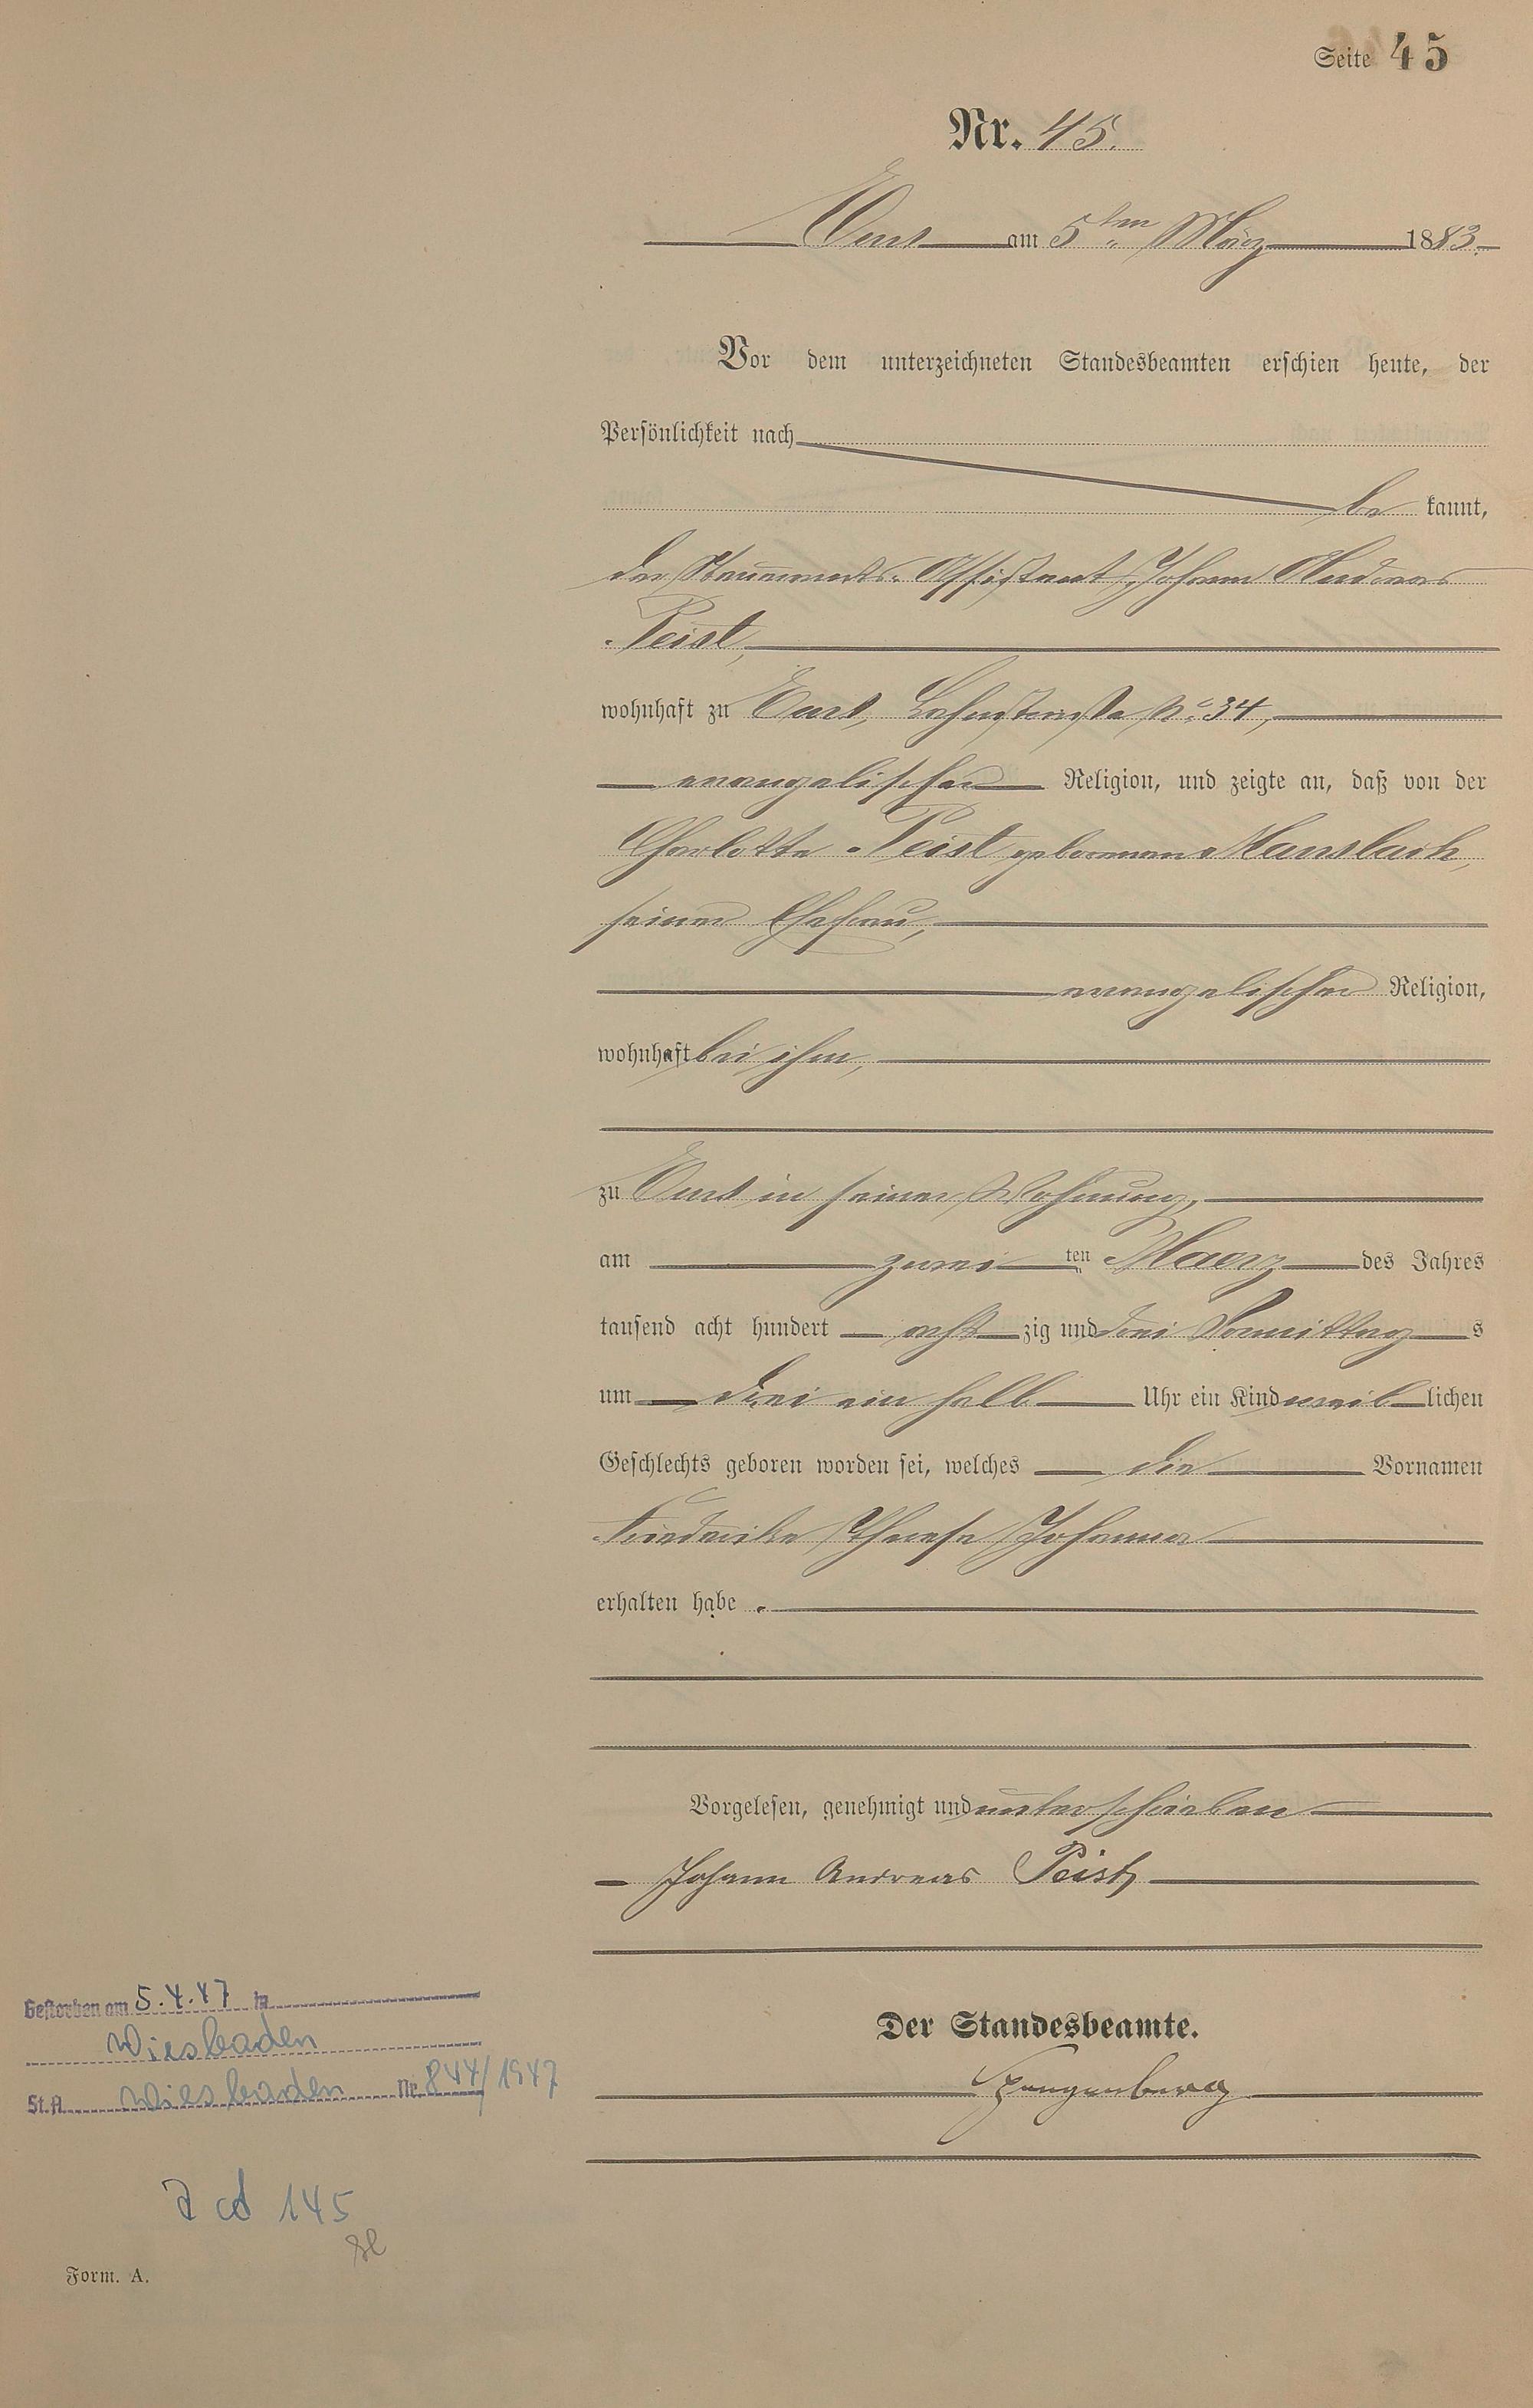 Seite 45
Nr. 45.
Ems am 5ten März 1883.
Vor dem unterzeichneten Standesbeamten erschien heute, der
Persönlichkeit nach
be kannt,
der Steueramts-Assistent Johann Andreas
Peist,
wohnhaft zu Ems, No. 34,
evangelischer Religion, und zeigte an, daß von der
Charlotte Peist geborenen Mansbach,
seiner Ehefrau,
evangelischer Religion,
wohnhaft bei ihm,
zu Ems in seiner Wohnung,
am zwei ten Maerz des Jahres
tausend acht hundert acht zig und drei Vormittag s
um drei ein halb Uhr ein Kind weib lichen
Geschlechts geboren worden sei, welches die Vornamen
Friederike Therese Johanna
erhalten habe.
Vorgelesen, genehmigt und unterschrieben
Johann Andreas Peist
Der Standesbeamte.
Spangenberg
Gestorben am 5.4.47 in
Wiesbaden
St.A. Wiesbaden Nr. 844/1947
145
Form. A.